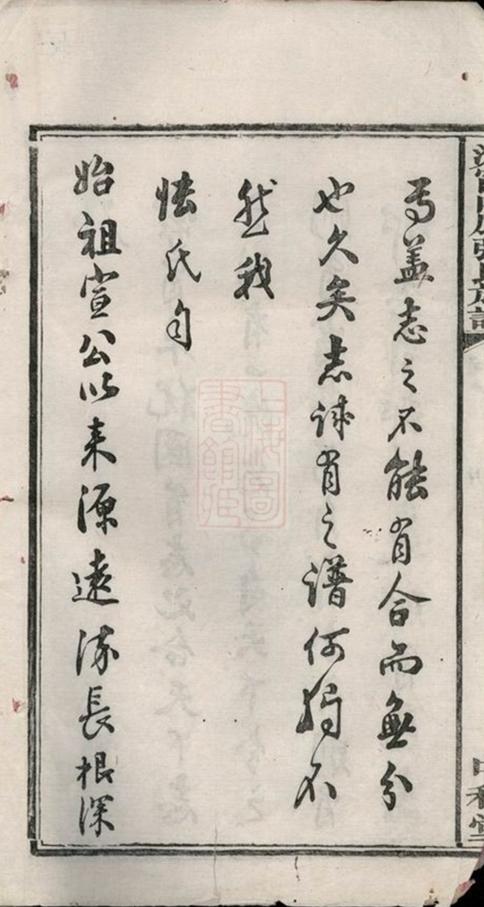 焉盖志之不能有合而無分
也久矣志誠有之譜何獨不
然我
張氏自
始祖宣公以来源遠流長根深
上海圖
書館藏